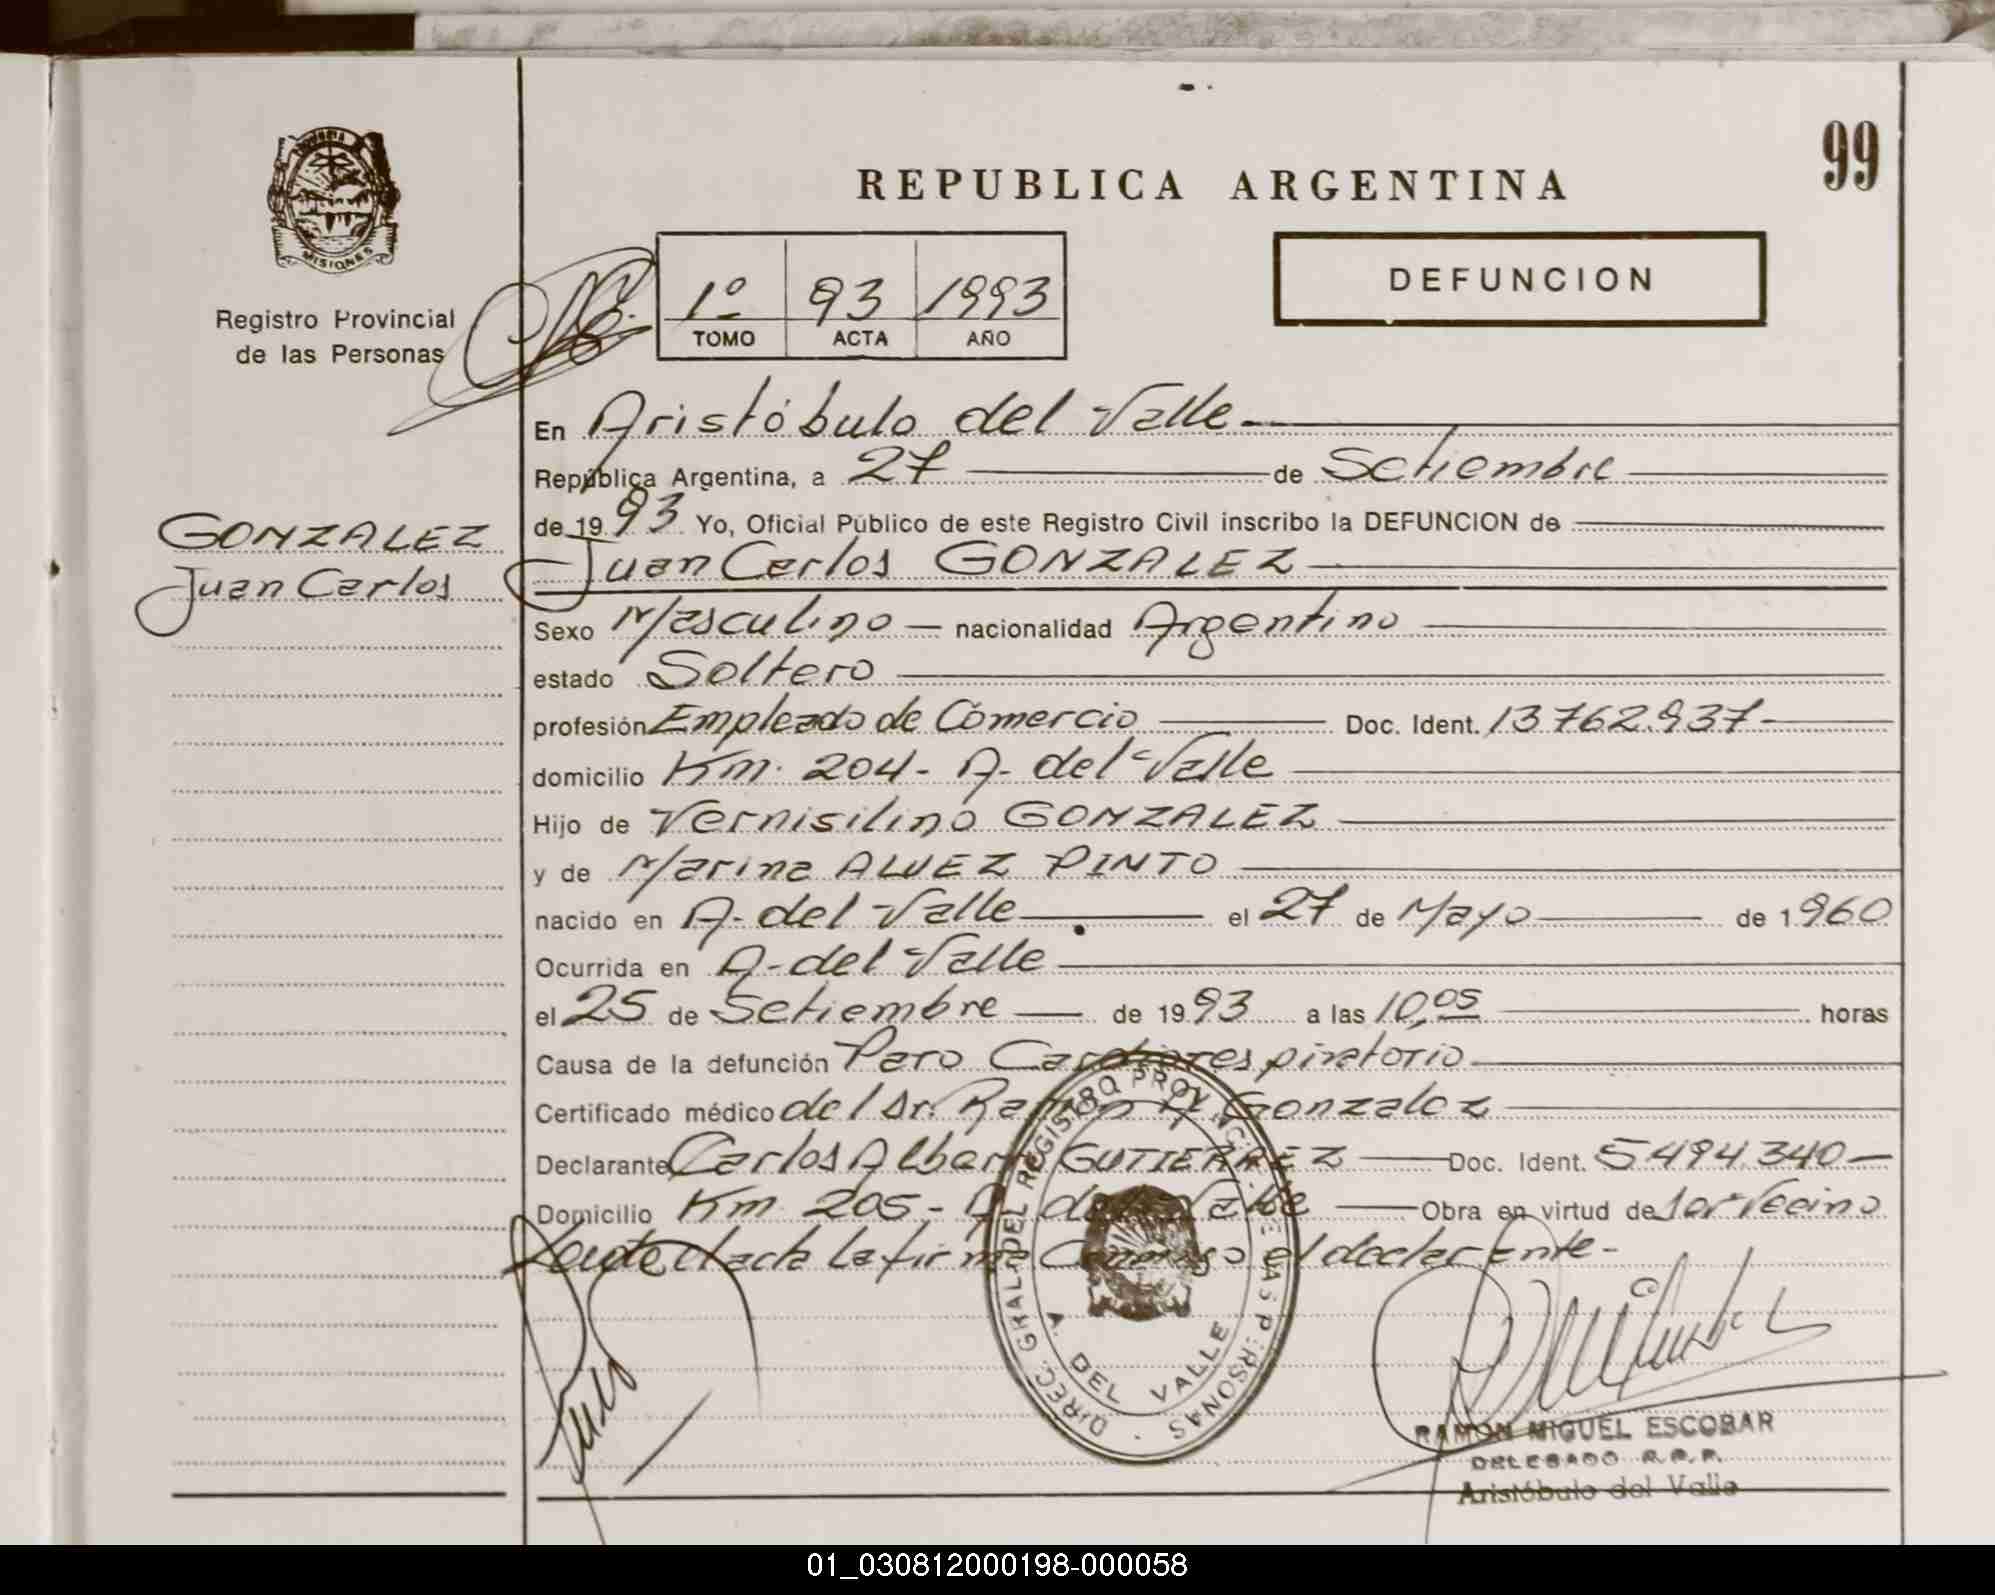 REPUBLICA ARGENTINA
99
DEFUNCION
PROVINCIA
MISIONES
Registro Provincial
de las Personas
1º 93 1993
TOMO ACTA AÑO
GONZALEZ
Juan Carlos
En Aristóbulo del Valle
República Argentina, a 27 de Setiembre
de 19 93 Yo, Oficial Público de este Registro Civil inscribo la DEFUNCION de
Juan Carlos GONZALEZ
Sexo Masculino nacionalidad Argentino
estado Soltero
profesión Empleado de Comercio Doc. Ident. 13762.937
domicilio Km. 204- A- del Valle
Hijo de Vernisilino GONZALEZ
y de Marina ALVEZ PINTO
nacido en A- del Valle el 27 de Mayo de 1960
Ocurrida en A- del Valle
el 25 de Setiembre de 19 93 a las 10,05 horas
Causa de la defunción Paro Cardiorespiratorio
Certificado médico del Dr. Ramón A Gonzalez
Declarante Carlos Alberto GUTIERREZ Doc. Ident. 5494.340-
Domicilio Km 205- A del Valle Obra en virtud de ser Vecino
Leída el acta la firma Conmigo el declarante-
DIREC. GRAL. DEL REGISTRO PROVINCIAL DE LAS PERSONAS
A. DEL VALLE
RAMON MIGUEL ESCOBAR
DELEGADO R.P.P.
Aristóbulo del Valle
01_030812000198-000058